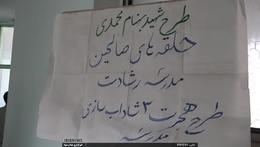 طرح شهید بهنام محمدی
حلقه های صالحین
مدرسه رشادت
طرح هجرت ۳ شاداب سازی
مدرسه